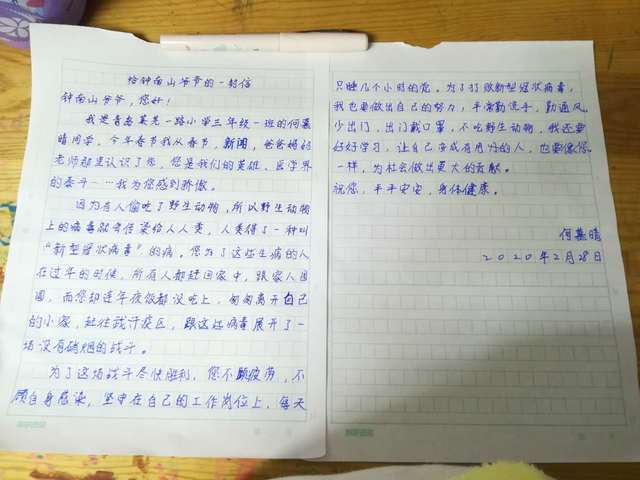 给钟南山爷爷的一封信
钟南山爷爷，您好！
我是青岛莱芜一路小学三年级一班的何慕
晴同学。今年春节我从春节，新闻，爸爸妈妈
老师那里认识了您，您是我们的英雄、医学界
的泰斗……我为您感到骄傲。
因为有人偷吃了野生动物，所以野生动物
上的病毒就会传染给人人类，人类得了一种叫
“新型冠状病毒”的病。您为了这些生病的人
在过年的时候，所有人都赶回家中，跟家人团
圆，而您却连年夜饭都没吃上，匆匆离开自己
的小家，赶往武汉疫区，跟这些病毒展开了一
场没有硝烟的战斗。
为了这场战斗尽快胜利，您不顾疲劳，不
顾自身感染，坚守在自己的工作岗位上，每天
只睡几个小时的觉。为了打败新型冠状病毒，
我也要做出自己的努力，平常勤洗手，勤通风。
少出门，出门戴口罩，不吃野生动物，我还要
好好学习，让自己变成有用的人，也要像您
一样，为社会做出更大的贡献。
祝您，平平安安，身体健康。
何慕晴
2020年2月28日